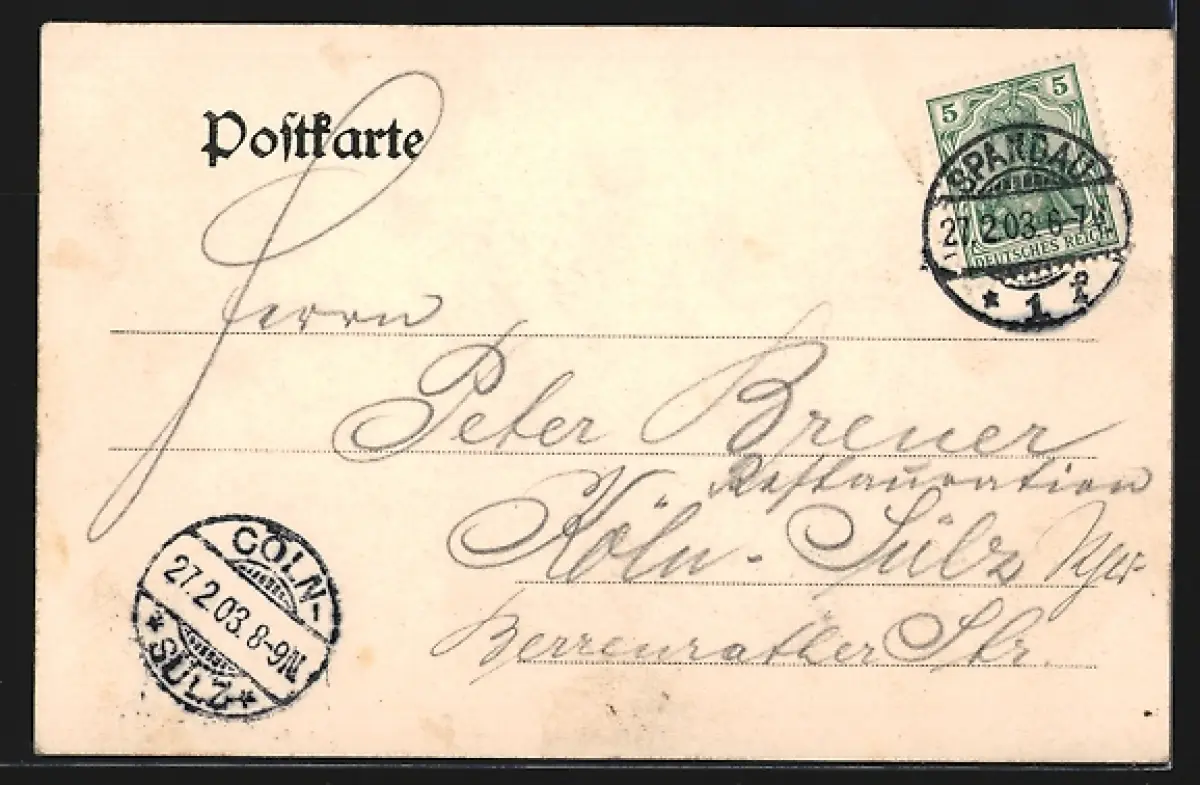 Postkarte
5 5
DEUTSCHES REICH
SPANDAU
27.2.03. 6-7N
* 1 *
Herrn
Peter Brener
Restauration
Köln-Sülz
Berrenrather Str.
CÖLN-
27.2.03. 8-9N.
* SÜLZ *